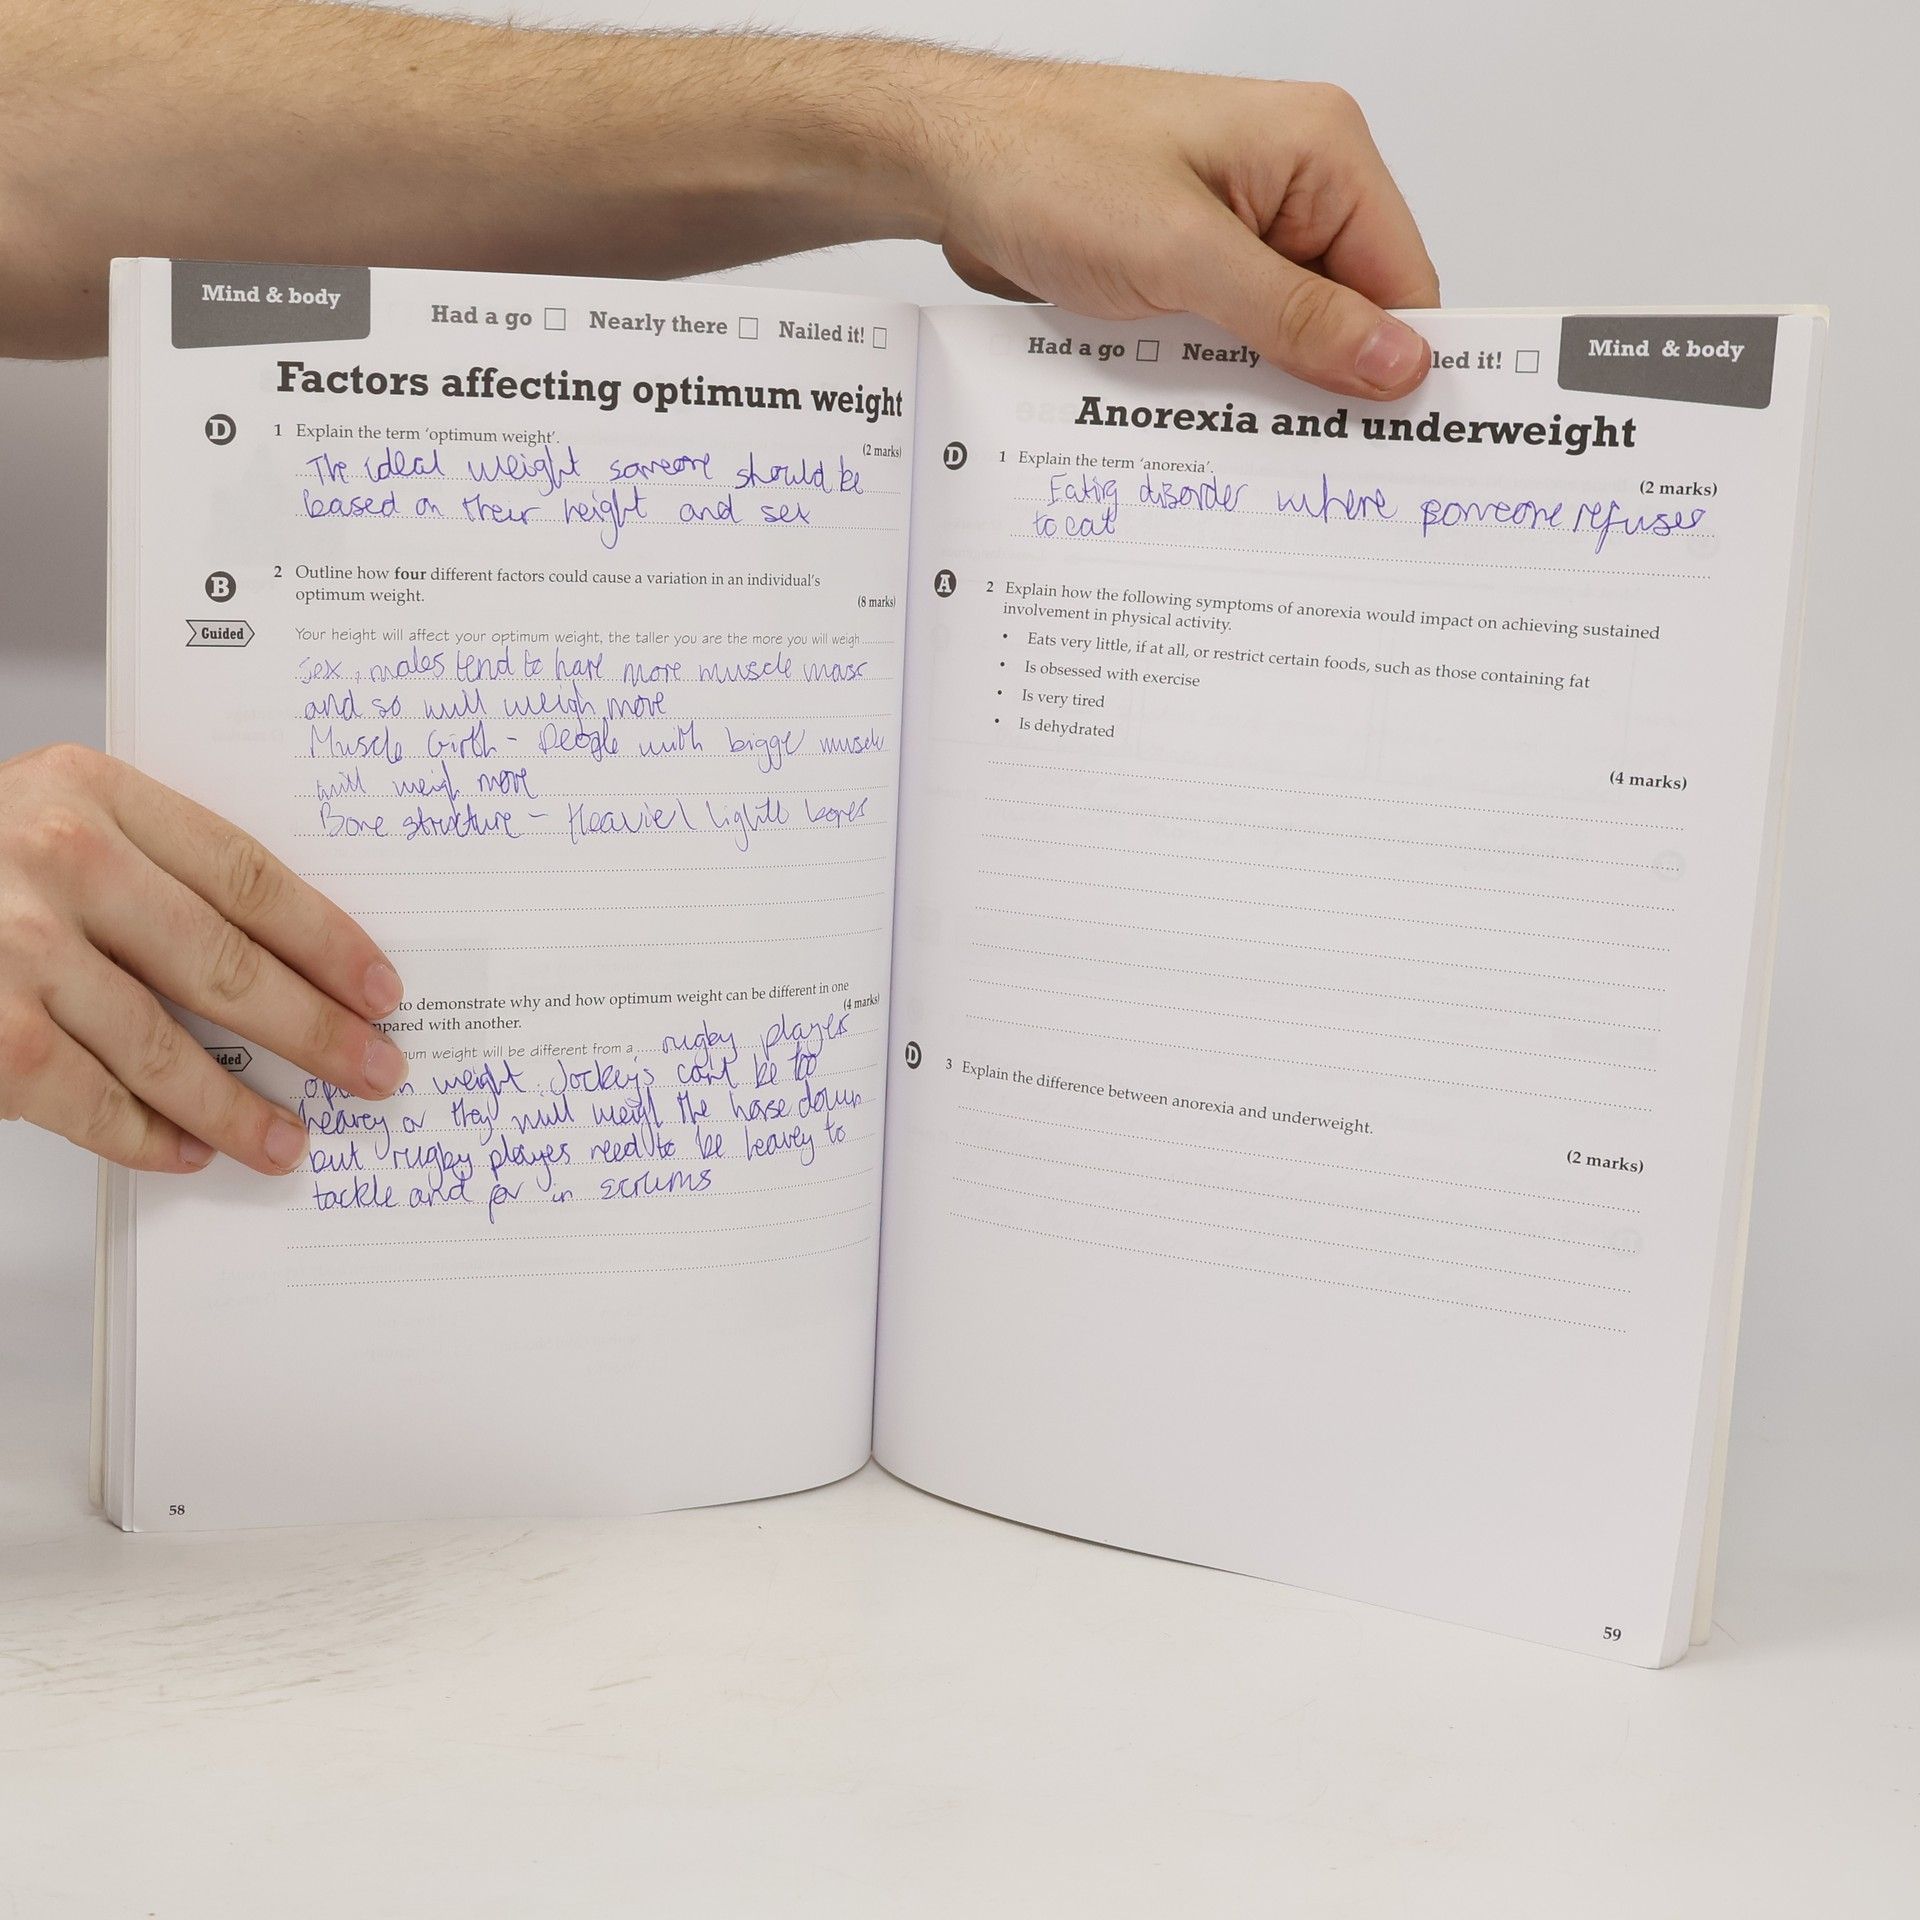 Mind & body
Had a go Nearly there Nailed it!
Factors affecting optimum weight
D
1 Explain the term 'optimum weight'.
(2 marks)
The ideal weight someone should be
based on their height and sex
B
2 Outline how four different factors could cause a variation in an individual's
optimum weight.
(8 marks)
Guided
Your height will affect your optimum weight, the taller you are the more you will weigh
Sex, males tend to have more muscle mass
and so will weigh more
Muscle Girth - People with bigger muscle
will weigh more
Bone structure - Heavier lighter bones
to demonstrate why and how optimum weight can be different in one
mpared with another.
(4 marks)
ided
um weight will be different from a rugby players
weight. Jockeys cant be too
heavey or they will weigh the horse down
but rugby players need to be heavey to
tackle and for in scrums
58
Had a go Nearly led it!
Mind & body
Anorexia and underweight
D
1 Explain the term 'anorexia'.
(2 marks)
Eating disorder where someone refuses
to eat
A
2 Explain how the following symptoms of anorexia would impact on achieving sustained
involvement in physical activity.
• Eats very little, if at all, or restrict certain foods, such as those containing fat
• Is obsessed with exercise
• Is very tired
• Is dehydrated
(4 marks)
D
3 Explain the difference between anorexia and underweight.
(2 marks)
59